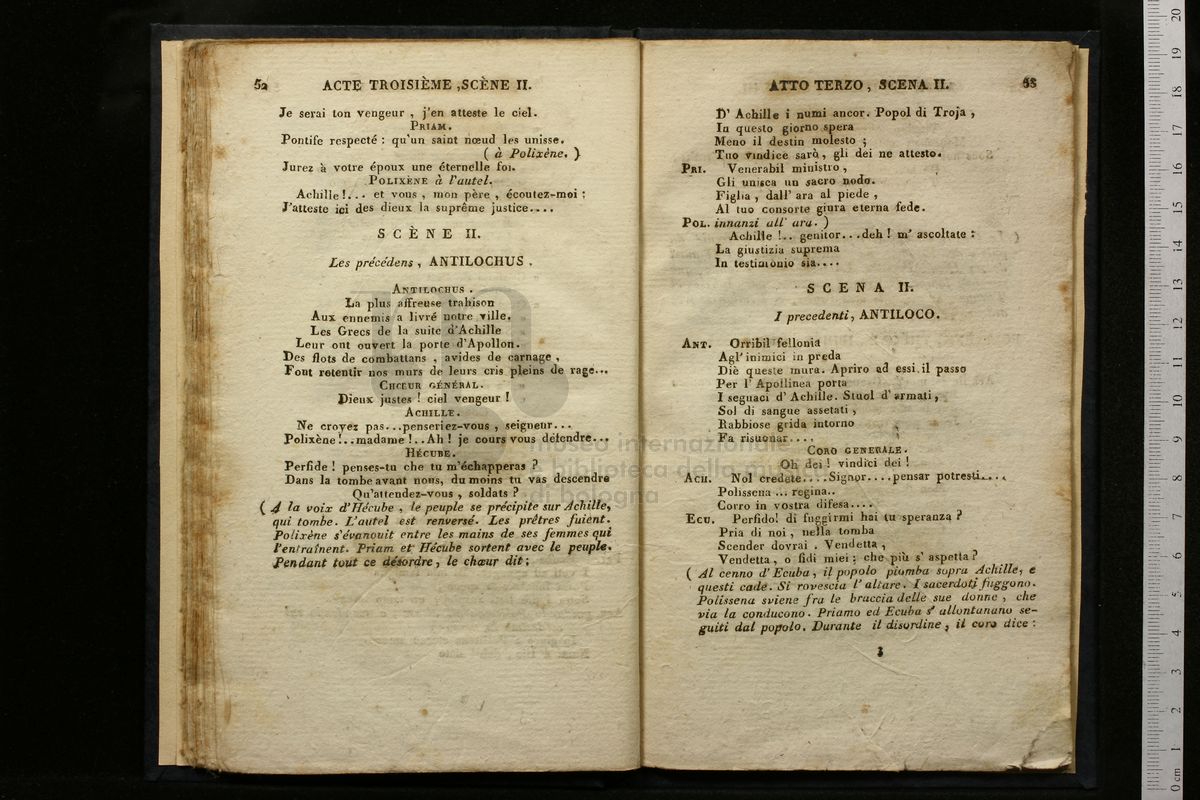 52 ACTE TROISIÈME ,SCÈNE II.
Je serai ton vengeur , j'en atteste le ciel.
PRIAM.
Pontife respecté : qu'un saint nœud les unisse.
( à Polixène. )
Jurez à votre époux une éternelle foi.
POLIXÈNE à l'autel.
Achille !... et vous , mon père , écoutez-moi :
J'atteste ici des dieux la suprême justice....
SCÈNE II.
Les précédens , ANTILOCHUS .
ANTILOCHUS .
La plus affreuse trahison
Aux ennemis a livré notre ville.
Les Grecs de la suite d'Achille
Leur ont ouvert la porte d'Apollon.
Des flots de combattans , avides de carnage ,
Font retentir nos murs de leurs cris pleins de rage...
CHŒUR GÉNÉRAL.
Dieux justes ! ciel vengeur !
ACHILLE.
Ne croyez pas...penseriez-vous , seigneur...
Polixène !..madame !..Ah ! je cours vous défendre...
HÉCUBE.
Perfide ! penses-tu che tu m'échapperas ?
Dans la tombe avant nous, du moins tu vas descendre
Qu'attendez-vous , soldats ?
( A la voix d'Hécube , le peuple se précipite sur Achille,
qui tombe. L'autel est renversé. Les prêtres fuient.
Polixène s'évanouit entre les mains de ses femmes qui
l'entraînent. Priam et Hécube sortent avec le peuple.
Pendant tout ce désordre , le chœur dit :
ATTO TERZO , SCENA II. 53
D' Achille i numi ancor. Popol di Troja ,
In questo giorno spera
Meno il destin molesto ;
Tuo vindice sarà, gli dei ne attesto.
PRI. Venerabil ministro ,
Gli unisca un sacro nodo.
Figlia , dall' ara al piede ,
Al tuo consorte giura eterna fede.
POL. innanzi all' ara. )
Achille !.. genitor...deh ! m' ascoltate :
La giustizia suprema
In testimonio sia....
SCENA II.
I precedenti, ANTILOCO.
ANT. Orribil fellonia
Agl' inimici in preda
Diè queste mura. Apriro ad essi il passo
Per l' Apollinea porta
I seguaci d' Achille. Stuol d' armati,
Sol di sangue assetati ,
Rabbiose grida intorno
Fa risuonar....
CORO GENERALE.
Oh dei ! vindici dei !
ACH. Nol credete....Signor....pensar potresti....
Polissena ... regina..
Corro in vostra difesa....
ECU. Perfido! di fuggirmi hai tu speranza ?
Pria di noi , nella tomba
Scender dovrai . Vendetta ,
Vendetta , o fidi miei : che più s' aspetta ?
( Al cenno d' Ecuba , il popolo piomba sopra Achille, e
questi cade. Si rovescia l' altare. I sacerdoti fuggono.
Polissena sviene fra le braccia delle sue donne , che
via la conducono. Priamo ed Ecuba s' allontanano se-
guiti dal popolo. Durante il disordine , il coro dice :
3
museo internazionale
e biblioteca della musica
di bologna
0 cm 1 2 3 4 5 6 7 8 9 10 11 12 13 14 15 16 17 18 19 20